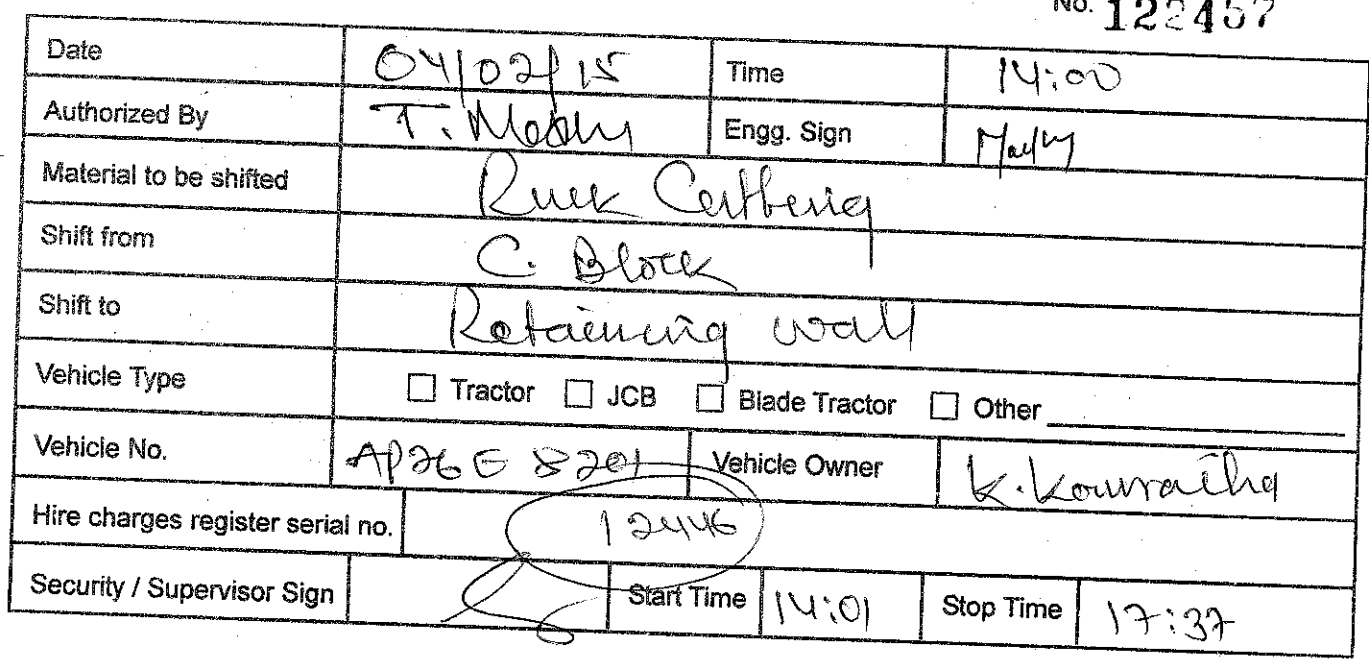 No. 122457
Date 04/02/15 Time 14:00
Authorized By T. Madhu Engg. Sign
Material to be shifted
Shift from C. Block
Shift to Retaining wall
Vehicle Type ☐ Tractor ☐ JCB ☐ Blade Tractor ☐ Other
Vehicle No. AP26E 8201 Vehicle Owner K.
Hire charges register serial no. 12446
Security / Supervisor Sign Start Time 14:01 Stop Time 17:37